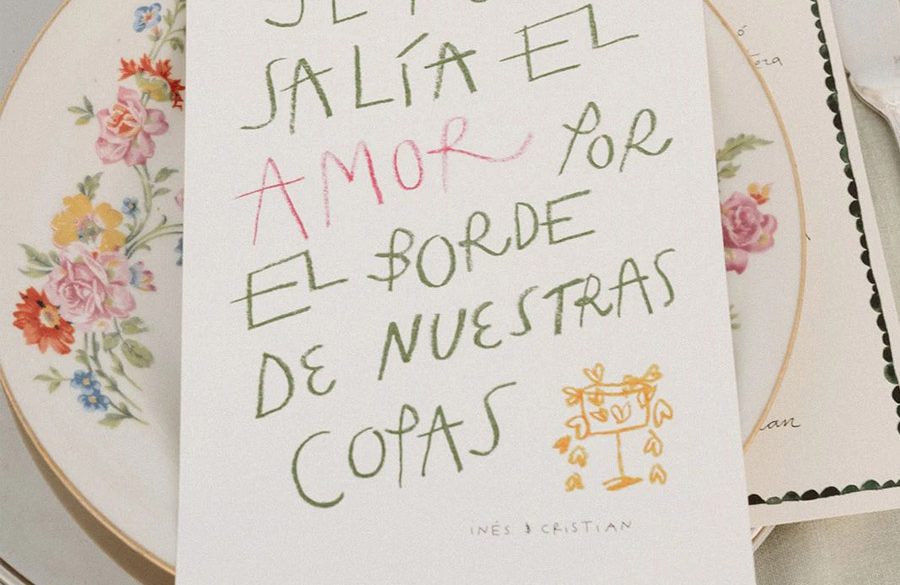 SALÍA EL
AMOR POR
EL BORDE
DE NUESTRAS
COPAS
INÉS & CRISTIAN
ó